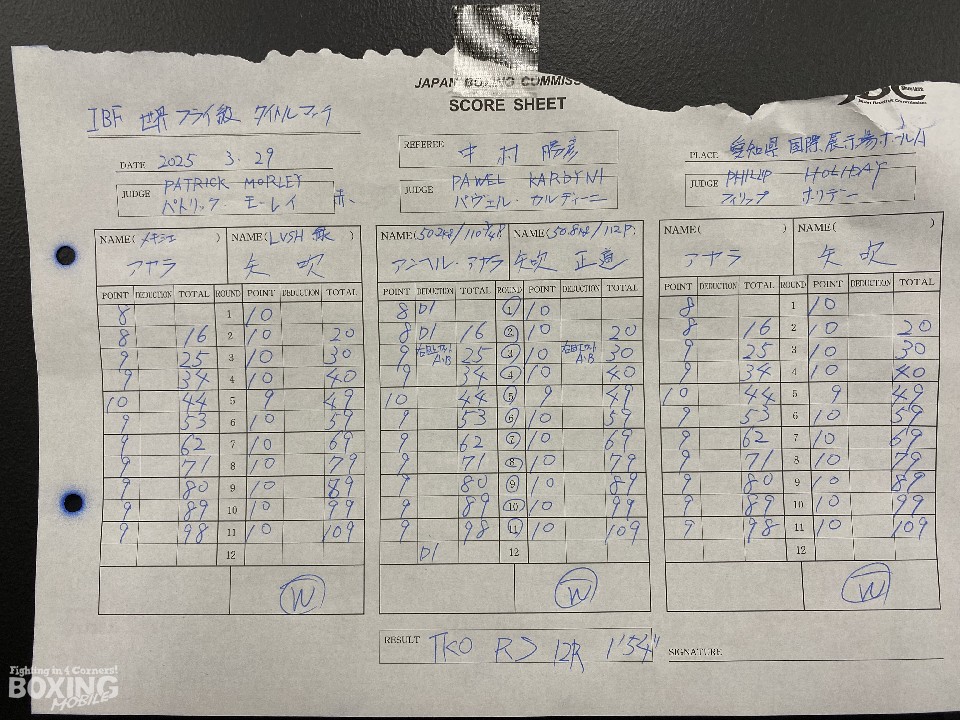 JAPAN BOXING COMMISS
SCORE SHEET
IBF 世界フライ級 タイトルマッチ
DATE 2025 3.29
REFEREE 中村勝彦
PLACE 愛知県国際展示場ホールA
JUDGE PATRICK MORLEY
パトリック・モーレイ 赤、
JUDGE PAWEL KARDYNI
パヴェル・カルディーニ
JUDGE PHILIP HOLIDAY
フィリップ ホリデー
NAME(メキシコ) NAME(LUSH 緑)
アヤラ 矢吹
NAME(50.2kg/110¾P) NAME(50.8kg/112P)
アンヘル・アヤラ 矢吹 正道
NAME( ) NAME( )
アヤラ 矢吹
POINT DEDUCTION TOTAL ROUND POINT DEDUCTION TOTAL
8 1 10
8 16 2 10 20
9 25 3 10 30
9 34 4 10 40
10 44 5 9 49
9 53 6 10 59
9 62 7 10 69
9 71 8 10 79
9 80 9 10 89
9 89 10 10 99
9 98 11 10 109
12
W
POINT DEDUCTION TOTAL ROUND POINT DEDUCTION TOTAL
8 D1 1 10
8 D1 16 2 10 20
9 A・B 25 3 10 A・B 30
9 34 4 10 40
10 44 5 9 49
9 53 6 10 59
9 62 7 10 69
9 71 8 10 79
9 80 9 10 89
9 89 10 10 99
9 98 11 10 109
D1 12
W
POINT DEDUCTION TOTAL ROUND POINT DEDUCTION TOTAL
8 1 10
8 16 2 10 20
9 25 3 10 30
9 34 4 10 40
10 44 5 9 49
9 53 6 10 59
9 62 7 10 69
9 71 8 10 79
9 80 9 10 89
9 89 10 10 99
9 98 11 10 109
12
W
RESULT TKO RS 12R 1'54"
SIGNATURE
Fighting in 4 Corners!
BOXING
MOBILE